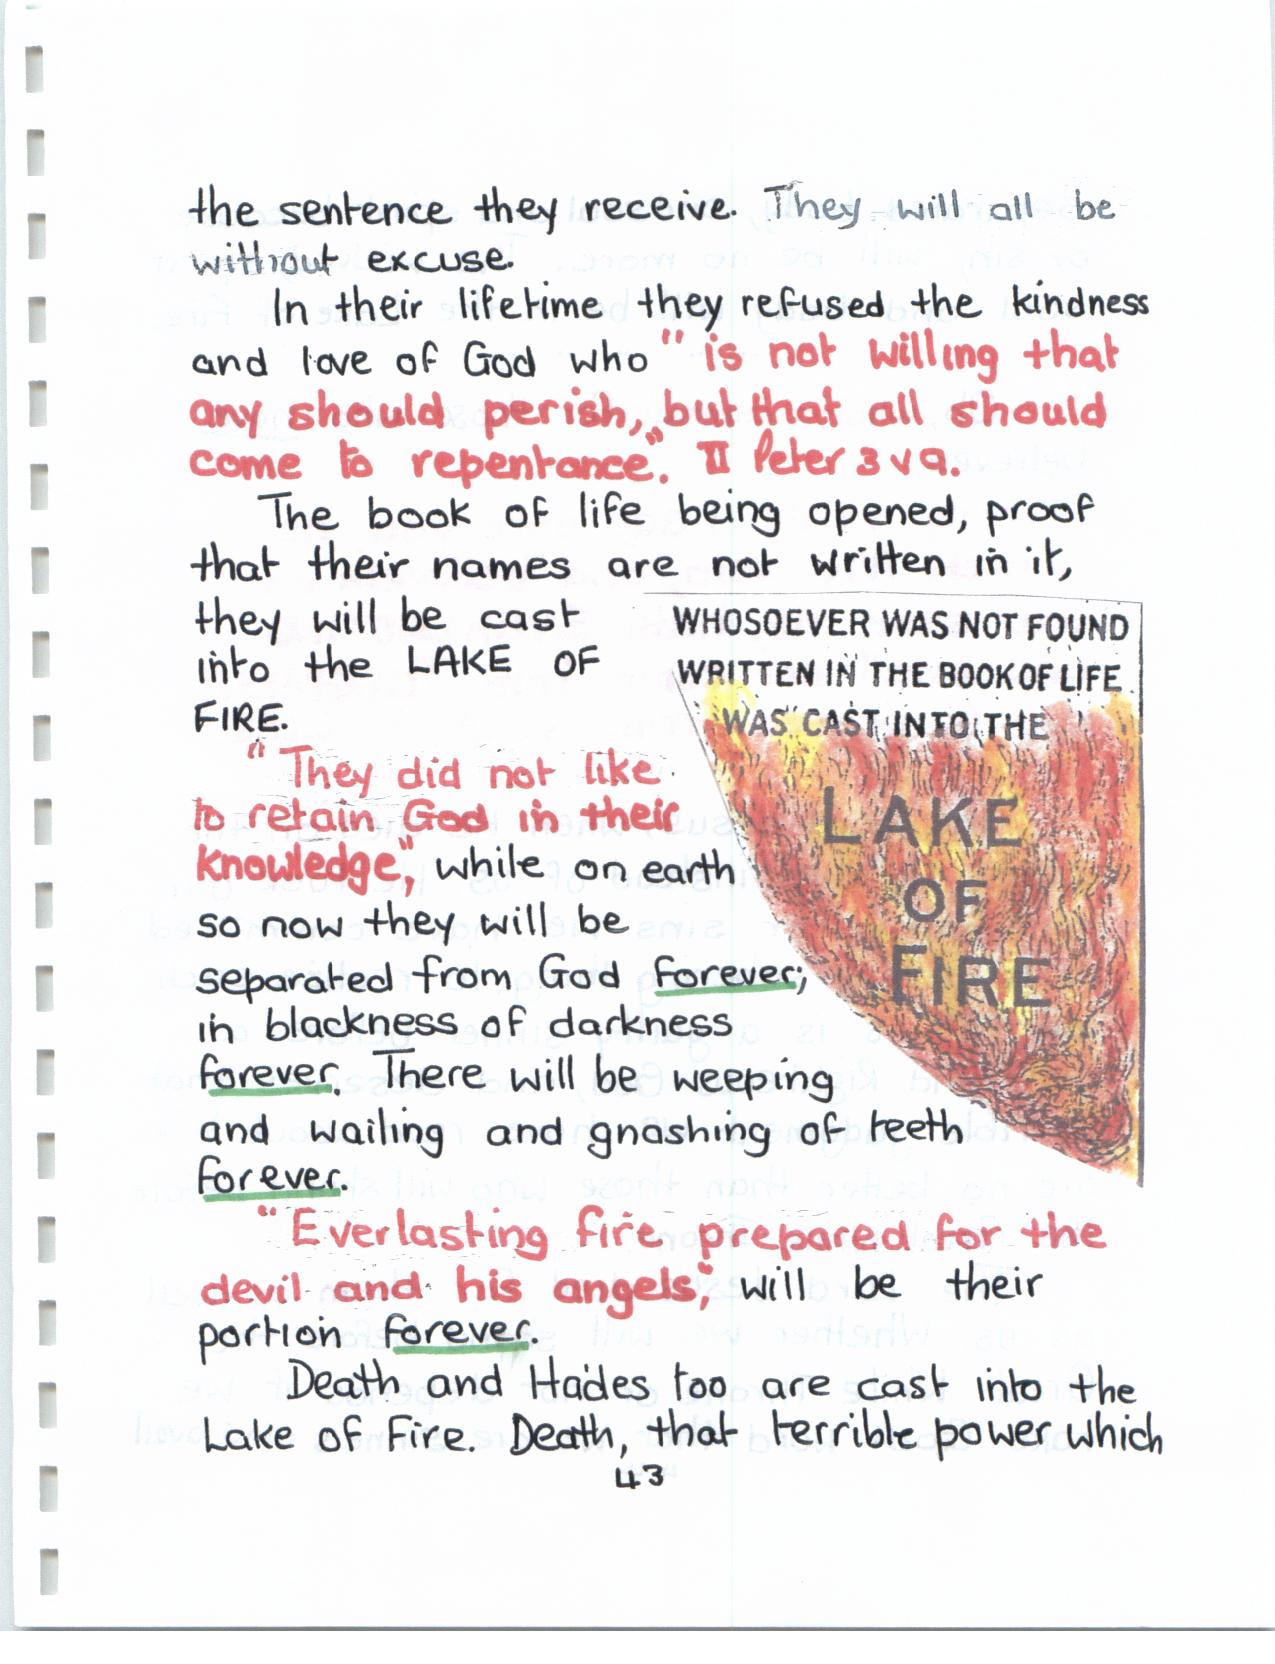 the sentence they receive. They will all be
without excuse.
In their lifetime they refused the kindness
and love of God who "is not willing that
any should perish, but that all should
come to repentance". II Peter 3 v 9.
The book of life being opened, proof
that their names are not written in it,
they will be cast
into the LAKE OF
FIRE.
WHOSOEVER WAS NOT FOUND
WRITTEN IN THE BOOK OF LIFE
WAS CAST INTO THE
LAKE
OF
FIRE
"They did not like
to retain God in their
knowledge", while on earth
so now they will be
separated from God forever;
in blackness of darkness
forever. There will be weeping
and wailing and gnashing of teeth
forever.
"Everlasting fire prepared for the
devil and his angels", will be their
portion forever.
Death and Hades too are cast into the
Lake of Fire. Death, that terrible power which
43